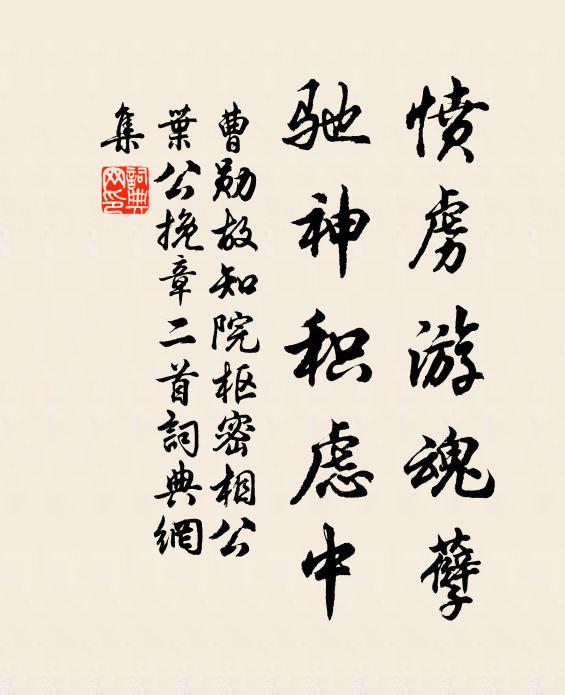 愤虏游魂孽
驰神积虑中
曹勋故知院枢密相公
葉公挽章二首詞典網
集
詞典網印